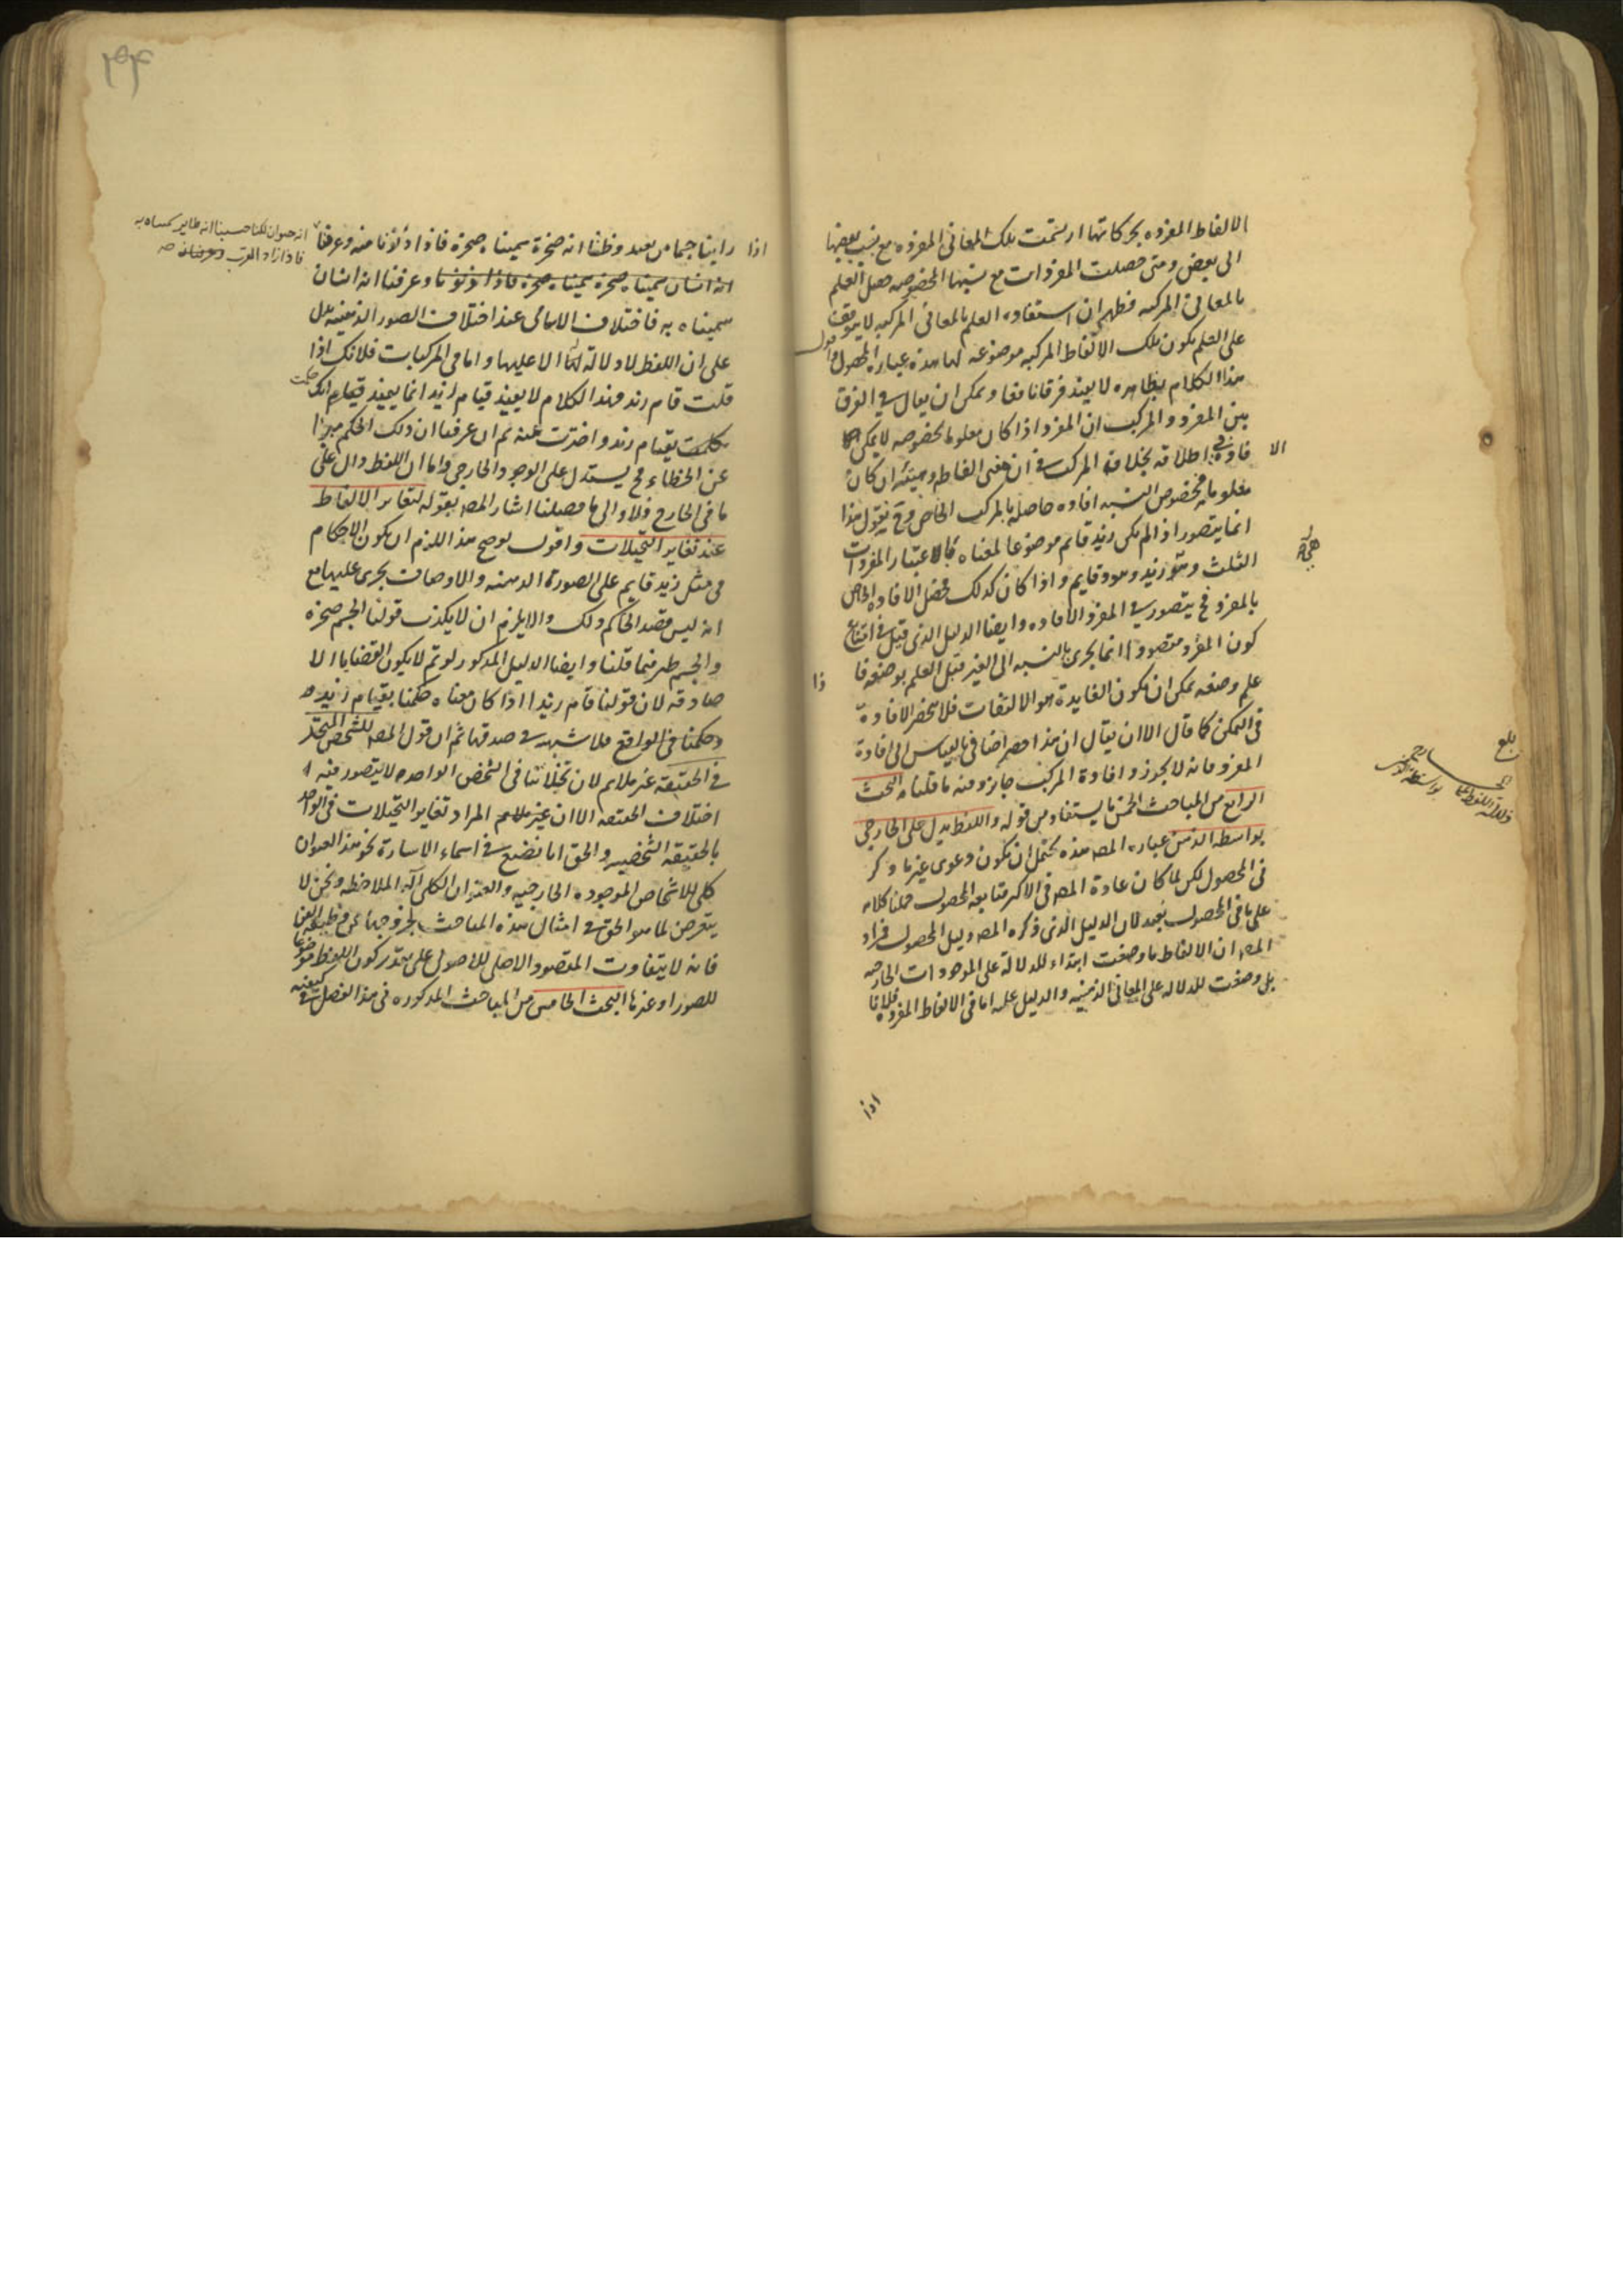 الالفاظ المفرده بحركاتها ارتسمت تلك المعانى المفرده مع نسب بعضها
الى بعض ومتى حصلت المفردات مع نسبها المخصوصه حصل العلم
بالمعانى المركبه فظهر ان استفاده العلم بالمعانى المركبه لا يتوقف
على العلم بكون تلك الالفاظ المركبه موضوعه لها هذه عباره المحصول واقول
هذا الكلام بظاهره لا يفيد فرقانا معا ويمكن ان يقال فى الفرق
بين المفرد والمركب ان المفرد اذا كان معلوما بخصوصه لا يمكن الا
فاده فى اطلاقه بخلاف المركب فان معنى الفاظه وهيئته ان كان
معلوما فخصوص النسبه افاده حاصله بالمركب الخاص وح نقول هذا
انما يتصور اذا لم يكن زيد قائم موضوعا لمعناه الا باعتبار المفردات
الثلث وهو زيد وهو وقايم واذا كان كذلك فحصل الافاده الخاص
بالمفرد فح يتصور فى المفرد الافاده وايضا الدليل الذى قيل فى امتناع
كون المفرد مقصودا انما يجرى بالنسبه الى الغير قبل العلم بوضعه فا ذا
علم وضعه يمكن ان يكون الفايدة هو الالتفات فلا تنحصر الافادة
فى الممكن كما قال الا ان يقال ان هذا حصر اضافى بالقياس الى افادة
المفرد فانه لا يجوز وافادة المركب جايز ومنه ما قلناه البحث
الرابع من المباحث الخمس ما يستفاد من قوله واللفظ يدل على الخارجى
بواسطه الذهن عباره المص هذه يحتمل ان يكون دعوى غير ما ذكر
فى المحصول لكن لما كان عادة المص فى الاكثر متابعه المحصول حملنا كلامه
على ما فى المحصول بعيد لان الدليل الذى ذكره المص دليل المحصول فمراد
المص ان الالفاظ ما وضعت ابتداء للدلالة على الموجودات الخارجيه
بل وضعت للدلاله على المعانى الذهنيه والدليل عليه اما فى الالفاظ المفرده فلانا
اذا
بلغ
اذا راينا جسما من بعيد وظننا انه صخرة سميناه صخرة فاذا دنونا منه وعرفنا
انه حيوان لكنا حسبنا انه طاير سميناه به
فاذا زاد القرب وعرفناه صه
انه انسان سميناه صخرة سميناه صخرة فاذا دنونا وعرفنا انه انسان
سميناه به فاختلاف الاسامى عند اختلاف الصور الذهنيه يدل
على ان اللفظ لا دلالة له الا عليها واما فى المركبات فلانك اذا
قلت قام زيد فهذا الكلام لا يفيد قيام زيد انما يفيد انك حكمت
بقيام زيد واخبرت عنه ثم ان عرفنا ان ذلك الحكم مبرا
عن الخطاء فح يستدل على الوجود الخارجى واما ان اللفظ دال على
ما فى الخارج فلا والى ما فصلنا اشار المص بقوله لتغاير الالفاظ
عند تغاير التخيلات واقول لو صح هذا للزم ان يكون الاحكام
فى مثل زيد قايم على الصورة الذهنيه والاوصاف يجرى عليها مع
انه ليس قصد الحاكم ذلك والا يلزم ان لا يكذب قولنا الجسم صخره
والجسم طير فيما قلنا وايضا الدليل المذكور لو تم لا يكون القضايا الا
صادقه لان قولنا قام زيد اذا كان معناه حكمنا بقيام زيد
وحكمنا فى الواقع فلا شبهه فى صدقها ثم ان قول المص للشخص المتحد
فى الحقيقه غير ملايم لان تخيلاتنا فى الشخص الواحد لا يتصور فيه
اختلاف الحقيقه الا ان المراد تغاير التخيلات فى الواحد
بالحقيقه الشخصيه والحق اما بصنع فى اسماء الاشارة نحو هذا العنوان
كلى للاشخاص الموجوده الخارجيه والعنوان الكلى آله الملاحظه ونحن لا
يتعرض لما هو الحق فى امثال هذه المباحث
فانه لا يتفاوت المقصود الاصلى للاصولى على تقدير كون اللفظ موضوعا
للصور او غيرها البحث الخامس من المباحث المذكوره فى هذا الفصل فى كيفيه